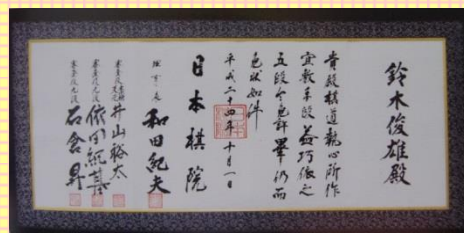 鈴木俊雄殿
貴殿棋道執心所作
宜敷手段益巧依之
五段令免許畢仍而
免状如件
平成二十四年十月一日
日本棋院
理事長 和田紀夫
井山裕太
依田紀基
石倉昇